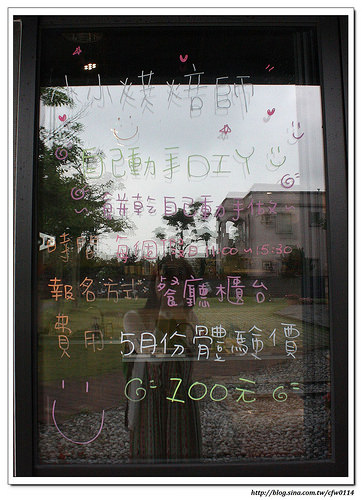 小小烘焙師
自己動手DIY
餅乾自己動手做
時間:每個假日 00~15:30
報名方式:餐廳櫃台
費用:5月份體驗價
100元
http://blog.sina.com.tw/cfw0114